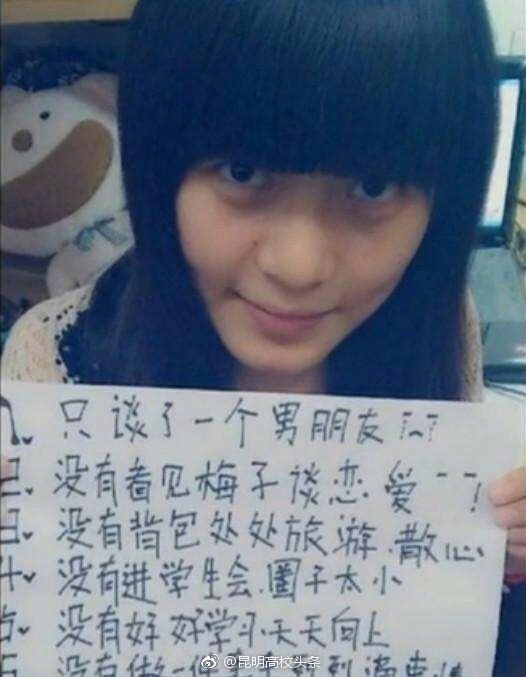 只谈了一个男朋友
没有看见梅子谈恋爱!
没有背包处处旅游.散心
没有进学生会.圈子太小
没有好好学习天天向上
没有做一件
@昆明高校头条